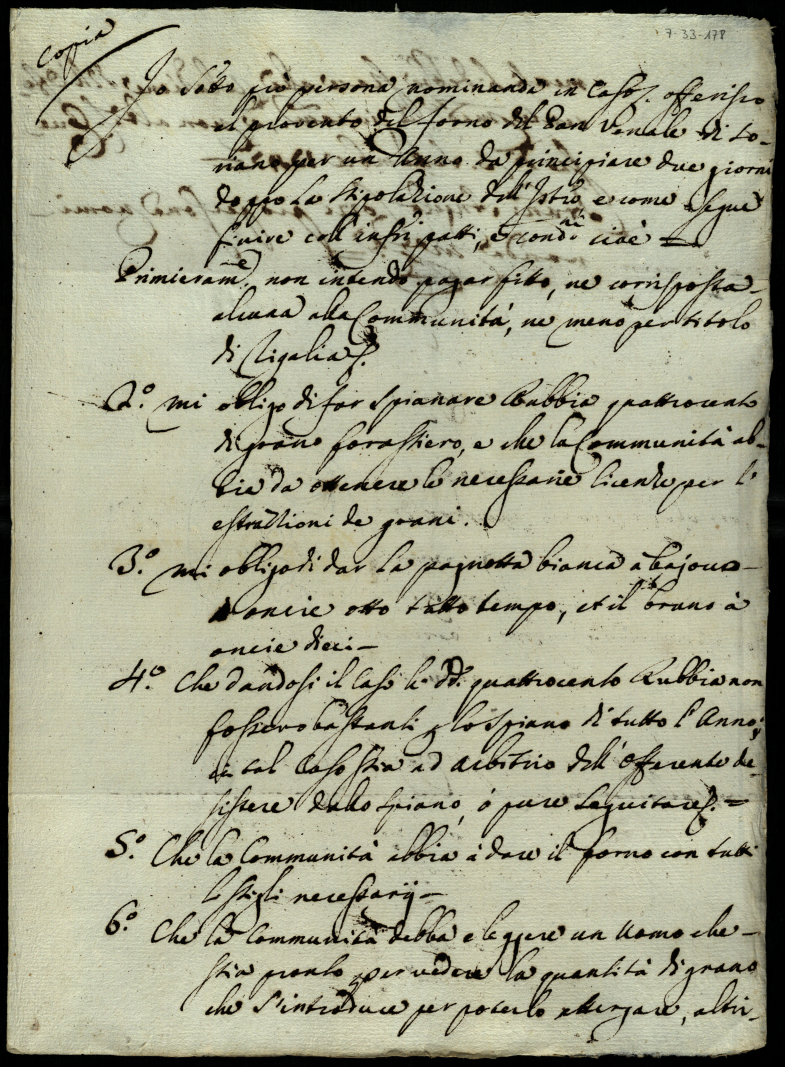 7-33-178
Copia
Io Sotto più persona nominanda in Caso &. offerisco
il provento del forno del Pan Venale di So-
riano per un Anno da principiare due giorni
doppo la stipolazione dell'Istro, e come segue
finire coll' infri patti, e condni cioè =
Primieramte. non intendo pagar fitto, ne corrisposta
alcuna alla Communità, ne meno per titolo
di Rigalia &.
2.o mi obligo di far spianare Rubbia quattrocento
di grano forastiero, e che la Communità ab-
bia da ottenere le necessarie licenze per l'
estrazzioni de grani.
3.o mi obligo di dar la pagnotta bianca a bajocco
oncie otto tutto tempo, et il bruno à
oncie dieci -
4.o Che dandosi il Caso le dde. quattrocento Rubbia non
fossero bastanti p lo spiano di tutto l'Anno,
in tal Caso stia ad Arbitrio dell'Offerente de-
sistere dallo spiano, ò pure seguitare &. =
5.o Che la Communità abbia à dare il forno con tutti
li stigli necessarij -
6.o Che la Communità debba eleggere un Uomo che
stia pronto per vedere la quantità di grano
che s'introduce per poterlo attergare, altri-